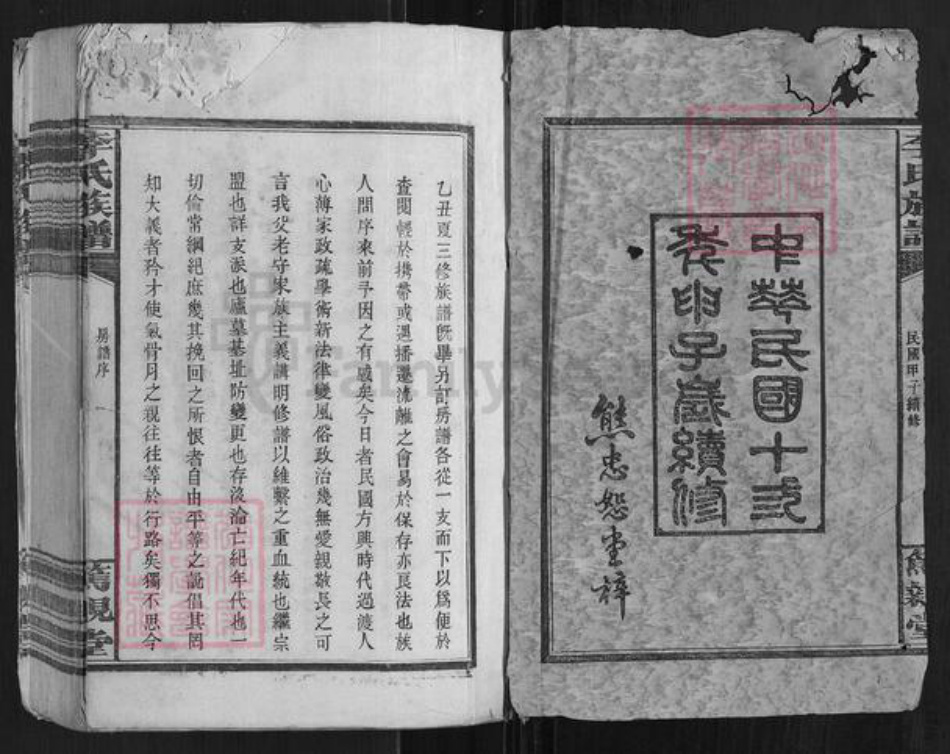 李氏族譜
民國甲子續修
篤親堂
中華民國十弎
秊甲子歲續修
熊忠恕堂梓
乙丑夏三修族譜旣畢另訂房譜各從一支而下以爲便於
查閱輕於携帶或遇播遷流離之會易於保存亦良法也族
人問序來前予因之有感矣今日者民國方興時代過渡人
心薄家政疏學術新法律變風俗政治幾無愛親敬長之可
言我父老守宗族主義講明修譜以維繫之重血統也繼宗
盟也詳支派也廬墓基址防變更也存沒淪亡紀年代也一
切倫常綱紀庶幾其挽回之所恨者自由平等之說倡其罔
知大義者矜才使氣骨肉之視往往等於行路矣獨不思今
李氏族譜
房譜序
篤親堂